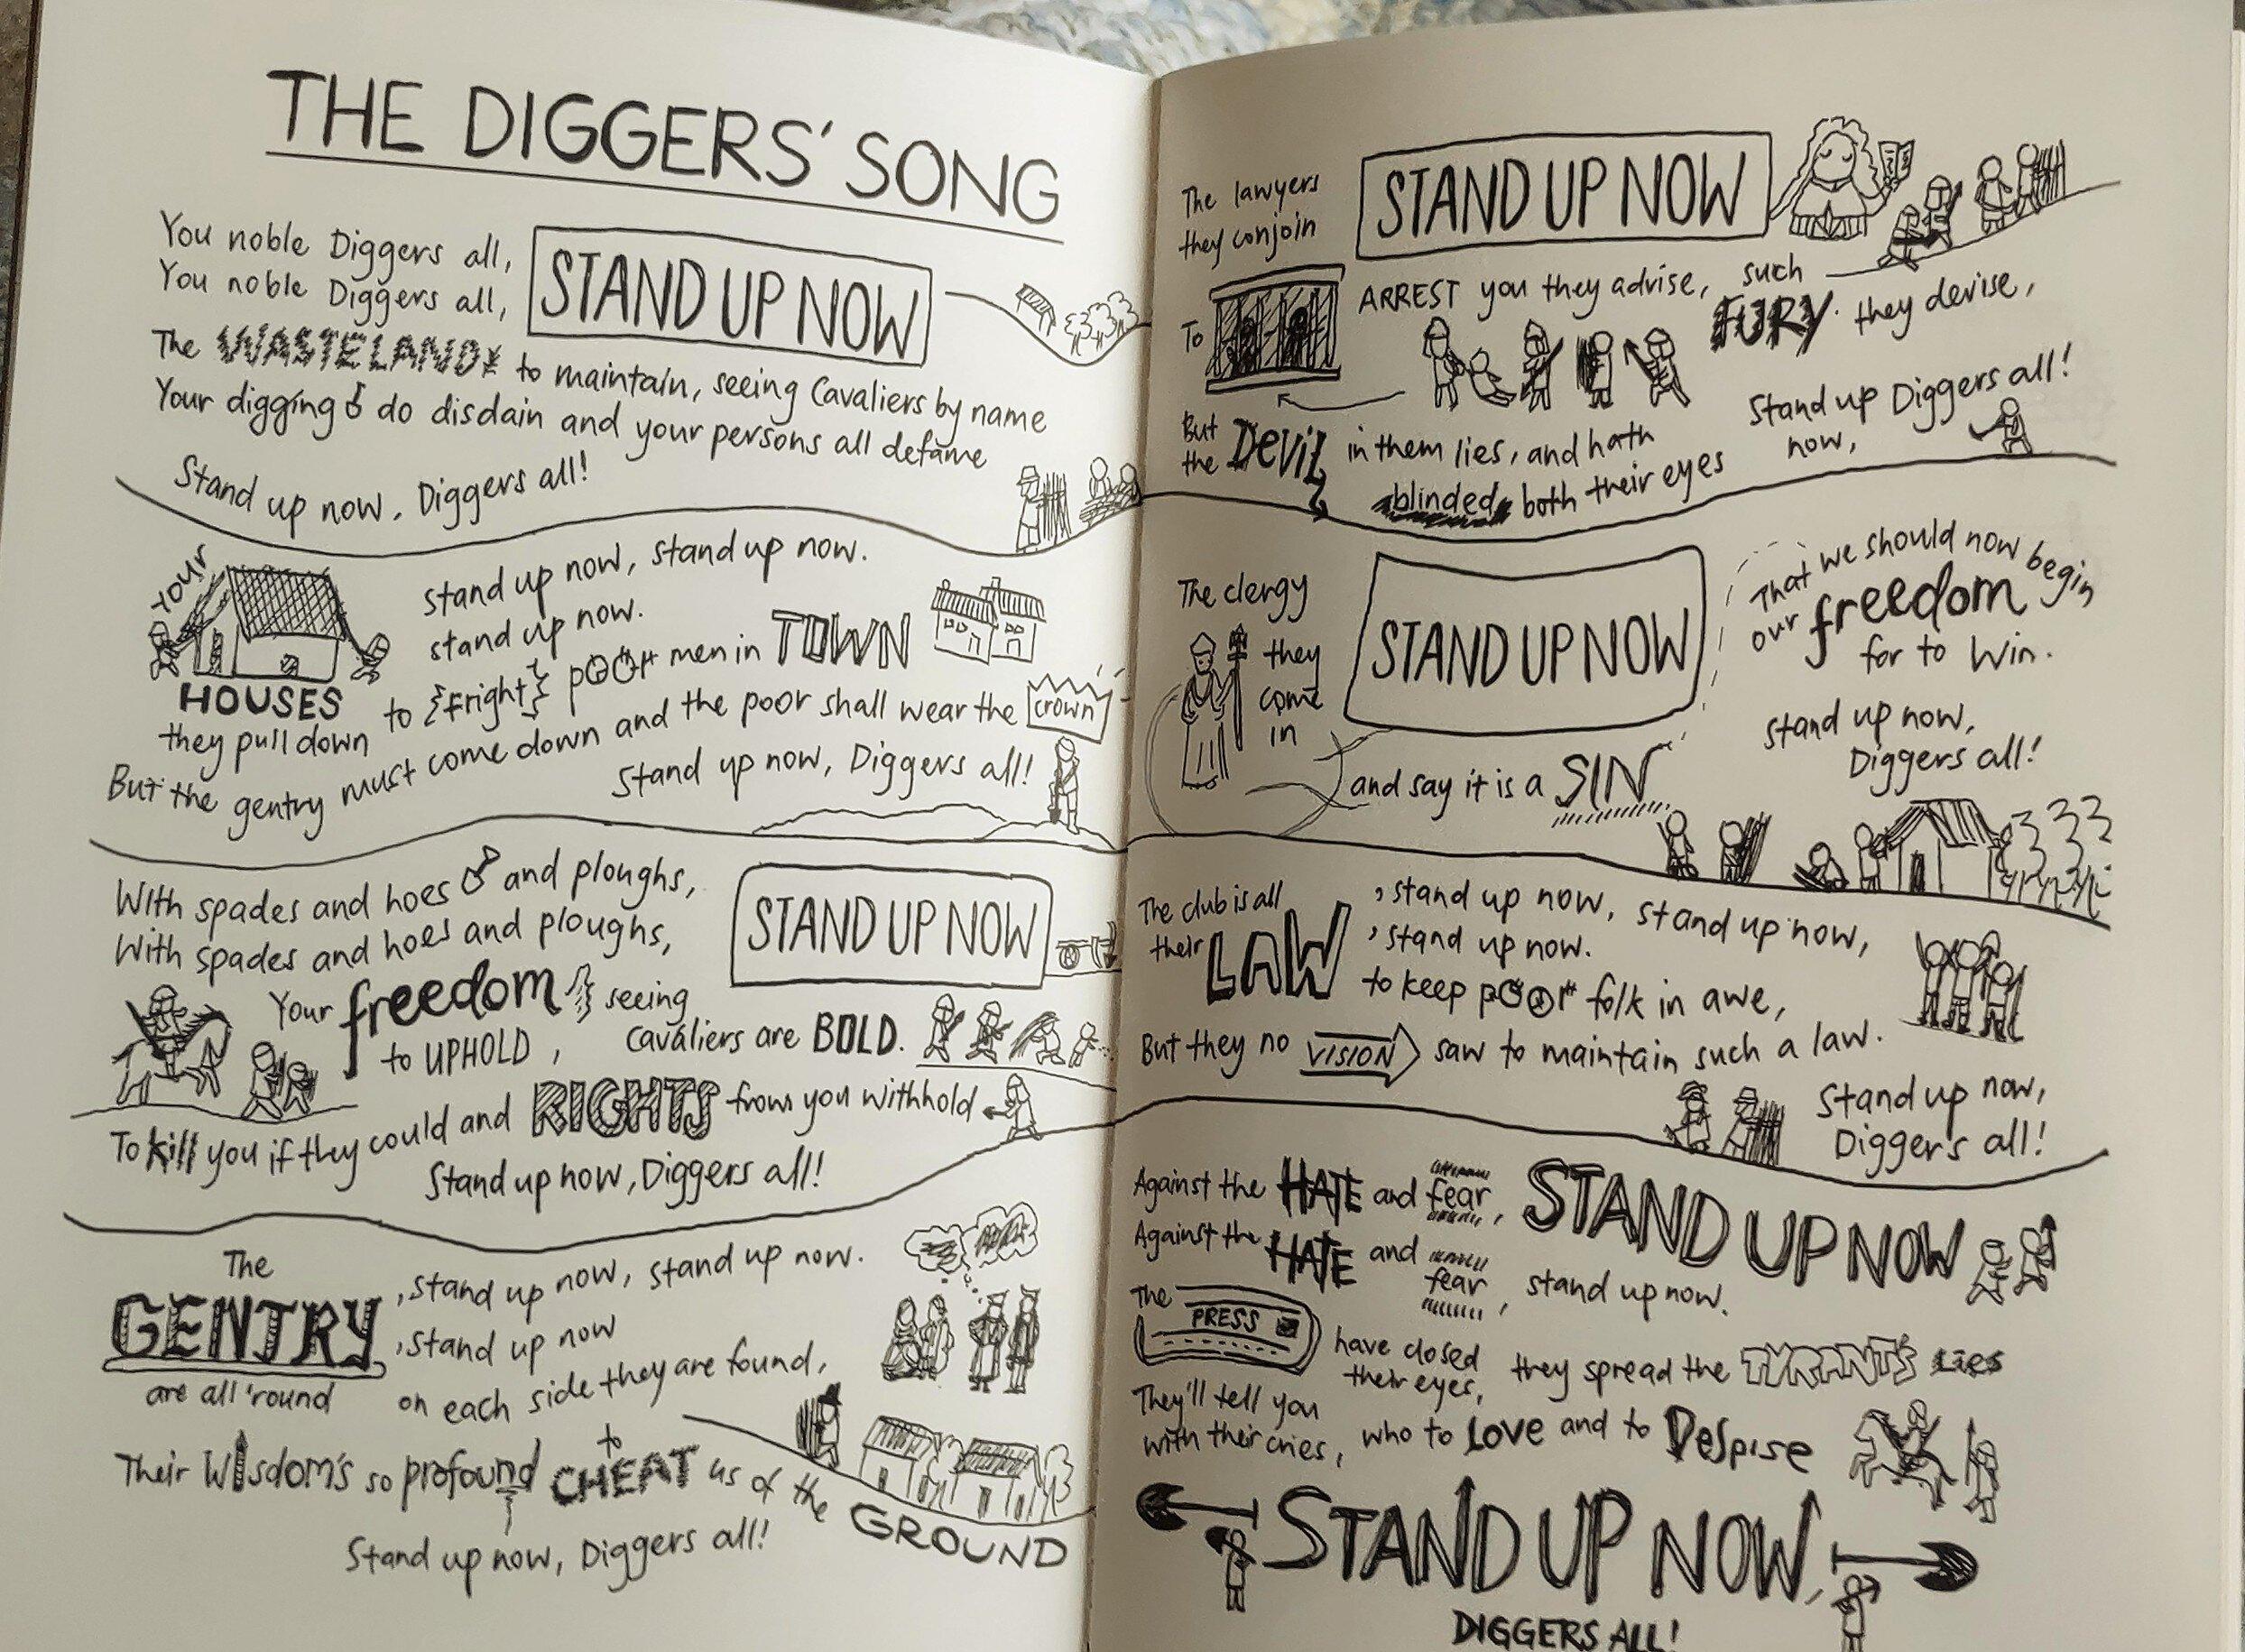 THE DIGGERS' SONG
You noble Diggers all,
You noble Diggers all,
STAND UP NOW
The WASTELAND to maintain, seeing Cavaliers by name
Your digging do disdain and your persons all defame
Stand up now, Diggers all!
YOUR
HOUSES
they pull down
stand up now, stand up now.
stand up now.
to {fright} poor men in TOWN
But the gentry must come down and the poor shall wear the crown
Stand up now, Diggers all!
With spades and hoes and ploughs,
With spades and hoes and ploughs,
STAND UP NOW
Your freedom to UPHOLD, seeing
Cavaliers are BOLD.
To kill you if they could and RIGHTS from you withhold
Stand up now, Diggers all!
The
GENTRY
are all 'round
, stand up now, stand up now.
, stand up now
on each side they are found,
Their Wisdom's so profound to CHEAT us of the GROUND
Stand up now, Diggers all!
The lawyers
they conjoin
STAND UP NOW
To ARREST you they advise, such
FURY they devise,
But the Devil in them lies, and hath
blinded both their eyes
Stand up Diggers all!
now,
The clergy
they
come
in
STAND UP NOW
and say it is a SIN
That we should now begin
our freedom
for to win.
Stand up now,
Diggers all!
The club is all
their LAW
, stand up now, stand up now,
, stand up now.
to keep poor folk in awe,
But they no VISION saw to maintain such a law.
Stand up now,
Diggers all!
Against the HATE and fear, STAND UP NOW
Against the HATE and fear, stand up now.
The PRESS have closed
their eyes, they spread the TYRANT'S Lies
They'll tell you
with their cries, who to Love and to Despise
STAND UP NOW,
DIGGERS ALL!